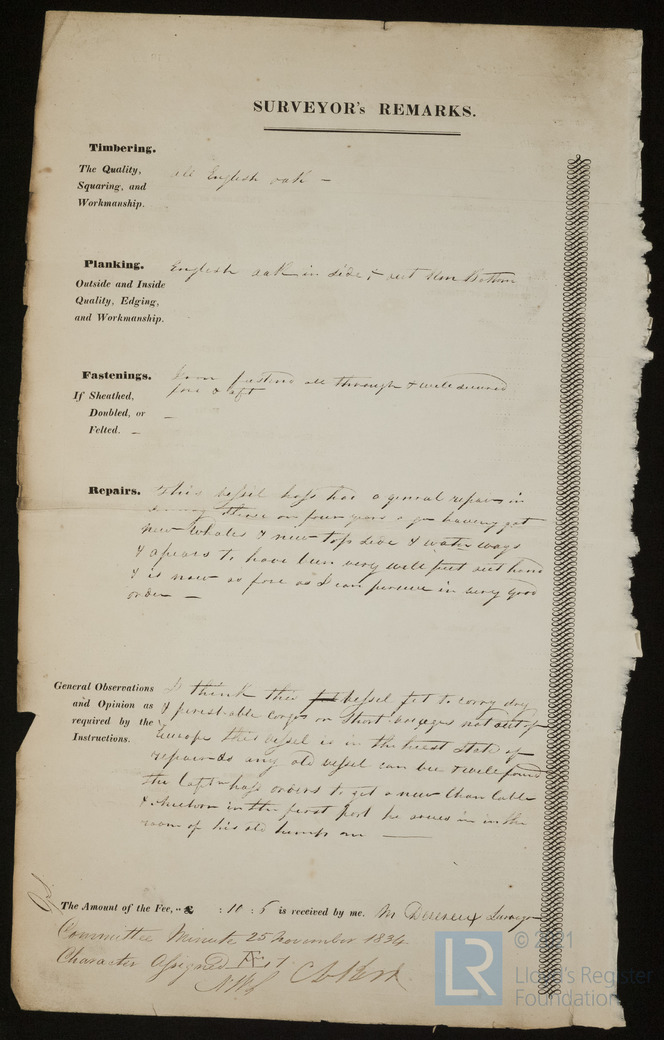 SURVEYOR's REMARKS.
Timbering.
The Quality,
Squaring, and
Workmanship.
all English oak —
Planking.
Outside and Inside
Quality, Edging,
and Workmanship.
English oak in side & out Elm Bottom
Fastenings.
If Sheathed,
Doubled, or
Felted. —
Iron fastend all through & well secured
fore & aft
—
Repairs.
This vessel hass had a general repair in
three or four years ago having got
new Whales & new tops side & water ways
& apears to have been very well feet out
& is now as fore as I can perceive in very good
order —
General Observations
and Opinion as
required by the
Instructions.
I think this vessel fit to carry dry
& perishable Corgos on Short voieges not out of
Europe this vessel is in the best state of
repair as any old vessel can bee & well found
the Captn hass orders to get a new Chan Cable
& Anchor in the first port he arives in in the
room of his old hemp one —
The Amount of the Fee, £ : 10 : 6 is received by me. M Devereux Survayor
Committee Minute 25 November 1834
Character Assigned Æ 1
© 2021
LR
Lloyd's Register
Foundation